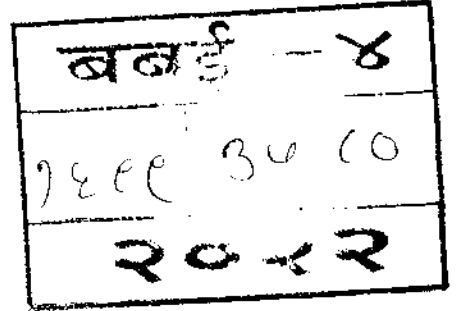 बबई - ४
१६९९ ३५ ८०
२०१२